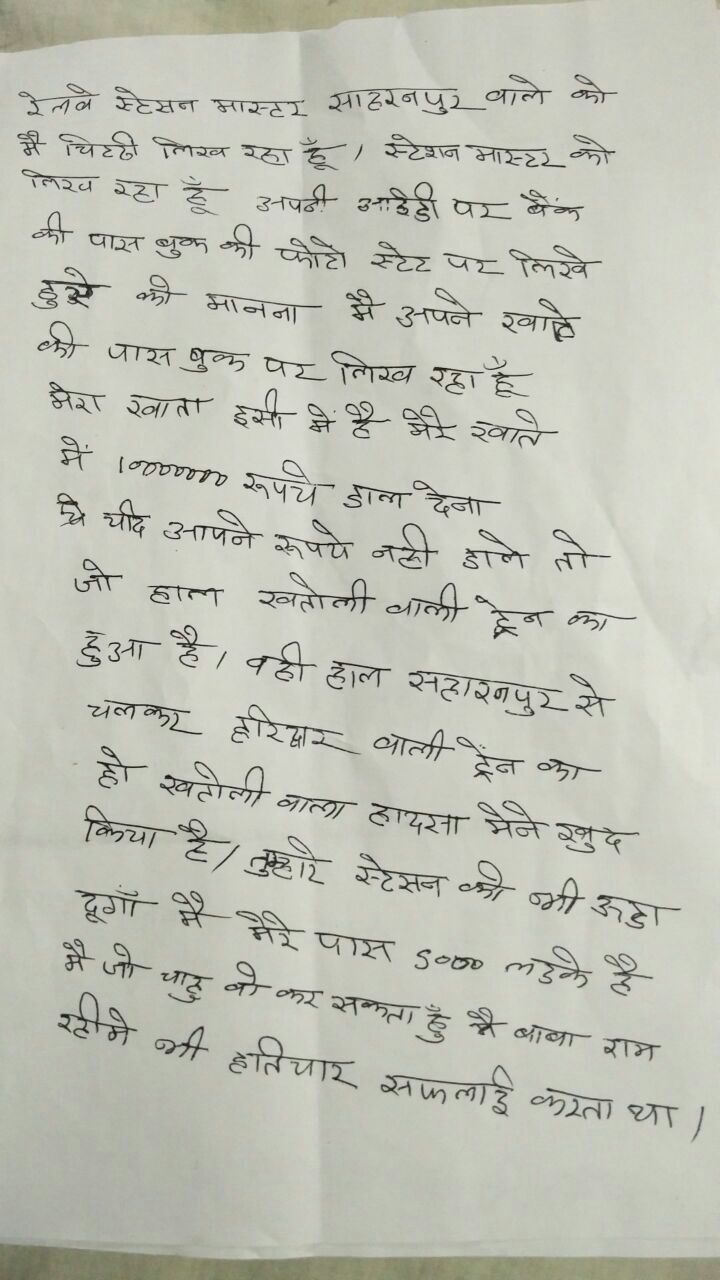 रेलवे स्टेसन मास्टर साहरनपुर वाले को
मै चिटठी लिख रहा हूँ। स्टेशन मास्टर को
लिख रहा हूँ अपनी आईडी पर बैंक
की पास बुक की फोटो स्टेट पर लिखे
हुऐ को मानना मै अपने खाते
की पास बुक पर लिख रहा हूँ
मेरा खाता इसी में है मेरे खाते
में 100000000 रूपये डाल देना
यदि आपने रूपये नही डाले तो
जो हाल खतोली वाली ट्रेन का
हुआ है। वही हाल सहारनपुर से
चलकर हरिद्वार वाली ट्रेंन का
हो खतोली वाला हादसा मैने खुद
किया है। तुम्हारे स्टेसन को भी ऊडा
दूगाँ मै मेरे पास 5000 लडके है
मै जो चाहु वो कर सकता हूँ मै बाबा राम
रहीमे भी हतियार सफलाई करता था।